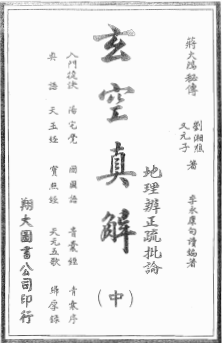 蔣大鴻秘傳
劉湘煃
又元子
著
李永康句讀編著
地理辨正疏批論
玄空真解
(中)
入門復訣 陽宅覺 開國語 青囊經 青囊序
奥語 天玉經 寶照經 天元五歌 歸厚錄
翔大圖書公司印行